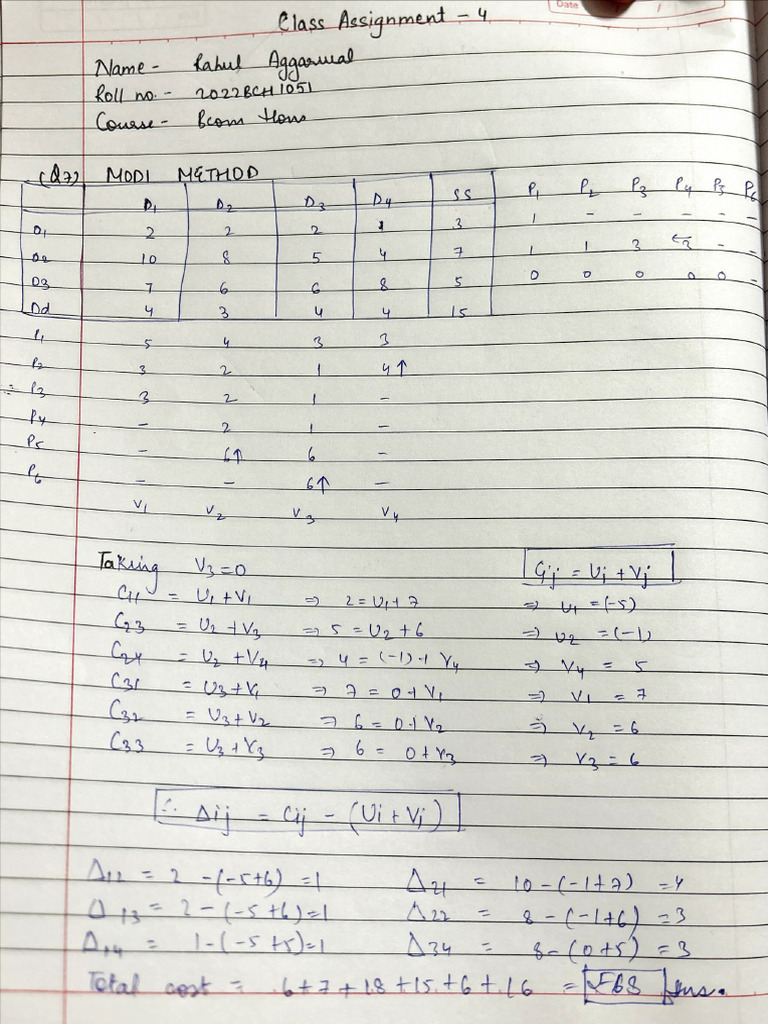 Date
Class Assignment - 4
Name - Rahul Aggarwal
Roll no. - 2022BCH1051
Course - Bcom Hons
(Q7) MODI METHOD
D1 D2 D3 D4 SS P1 P2 P3 P4 P5 P6
O1 2 2 2 1 3 1 - - - - -
O2 10 8 5 4 7 1 1 3 ←3 - -
O3 7 6 6 8 5 0 0 0 0 0 -
Dd 4 3 4 4 15
P1 5 4 3 3
P2 3 2 1 4↑
P3 3 2 1 -
P4 - 2 1 -
P5 - 6↑ 6 -
P6 - - 6↑ -
V1 V2 V3 V4
Taking V3=0 Cij = Ui + Vj
C11 = U1+V1 => 2=U1+7 => U1 =(-5)
C23 = U2 +V3 => 5 = U2+6 => U2 =(-1)
C24 = U2 +V4 => 4 = (-1)+ V4 => V4 = 5
C31 = U3+V1 => 7 = 0+V1 => V1 = 7
C32 = U3+V2 => 6 = 0+V2 => V2 = 6
C33 = U3+V3 => 6 = 0+V3 => V3 = 6
∴ Δij = Cij - (Ui + Vj)
Δ12 = 2 -(-5+6) =1 Δ21 = 10-(-1+7) =4
Δ13 = 2-(-5+6)=1 Δ22 = 8-(-1+6) =3
Δ14 = 1-(-5+5)=1 Δ34 = 8-(0+5) =3
Total cost = 6+7+18+15+6+16 = ₹68 Ans.